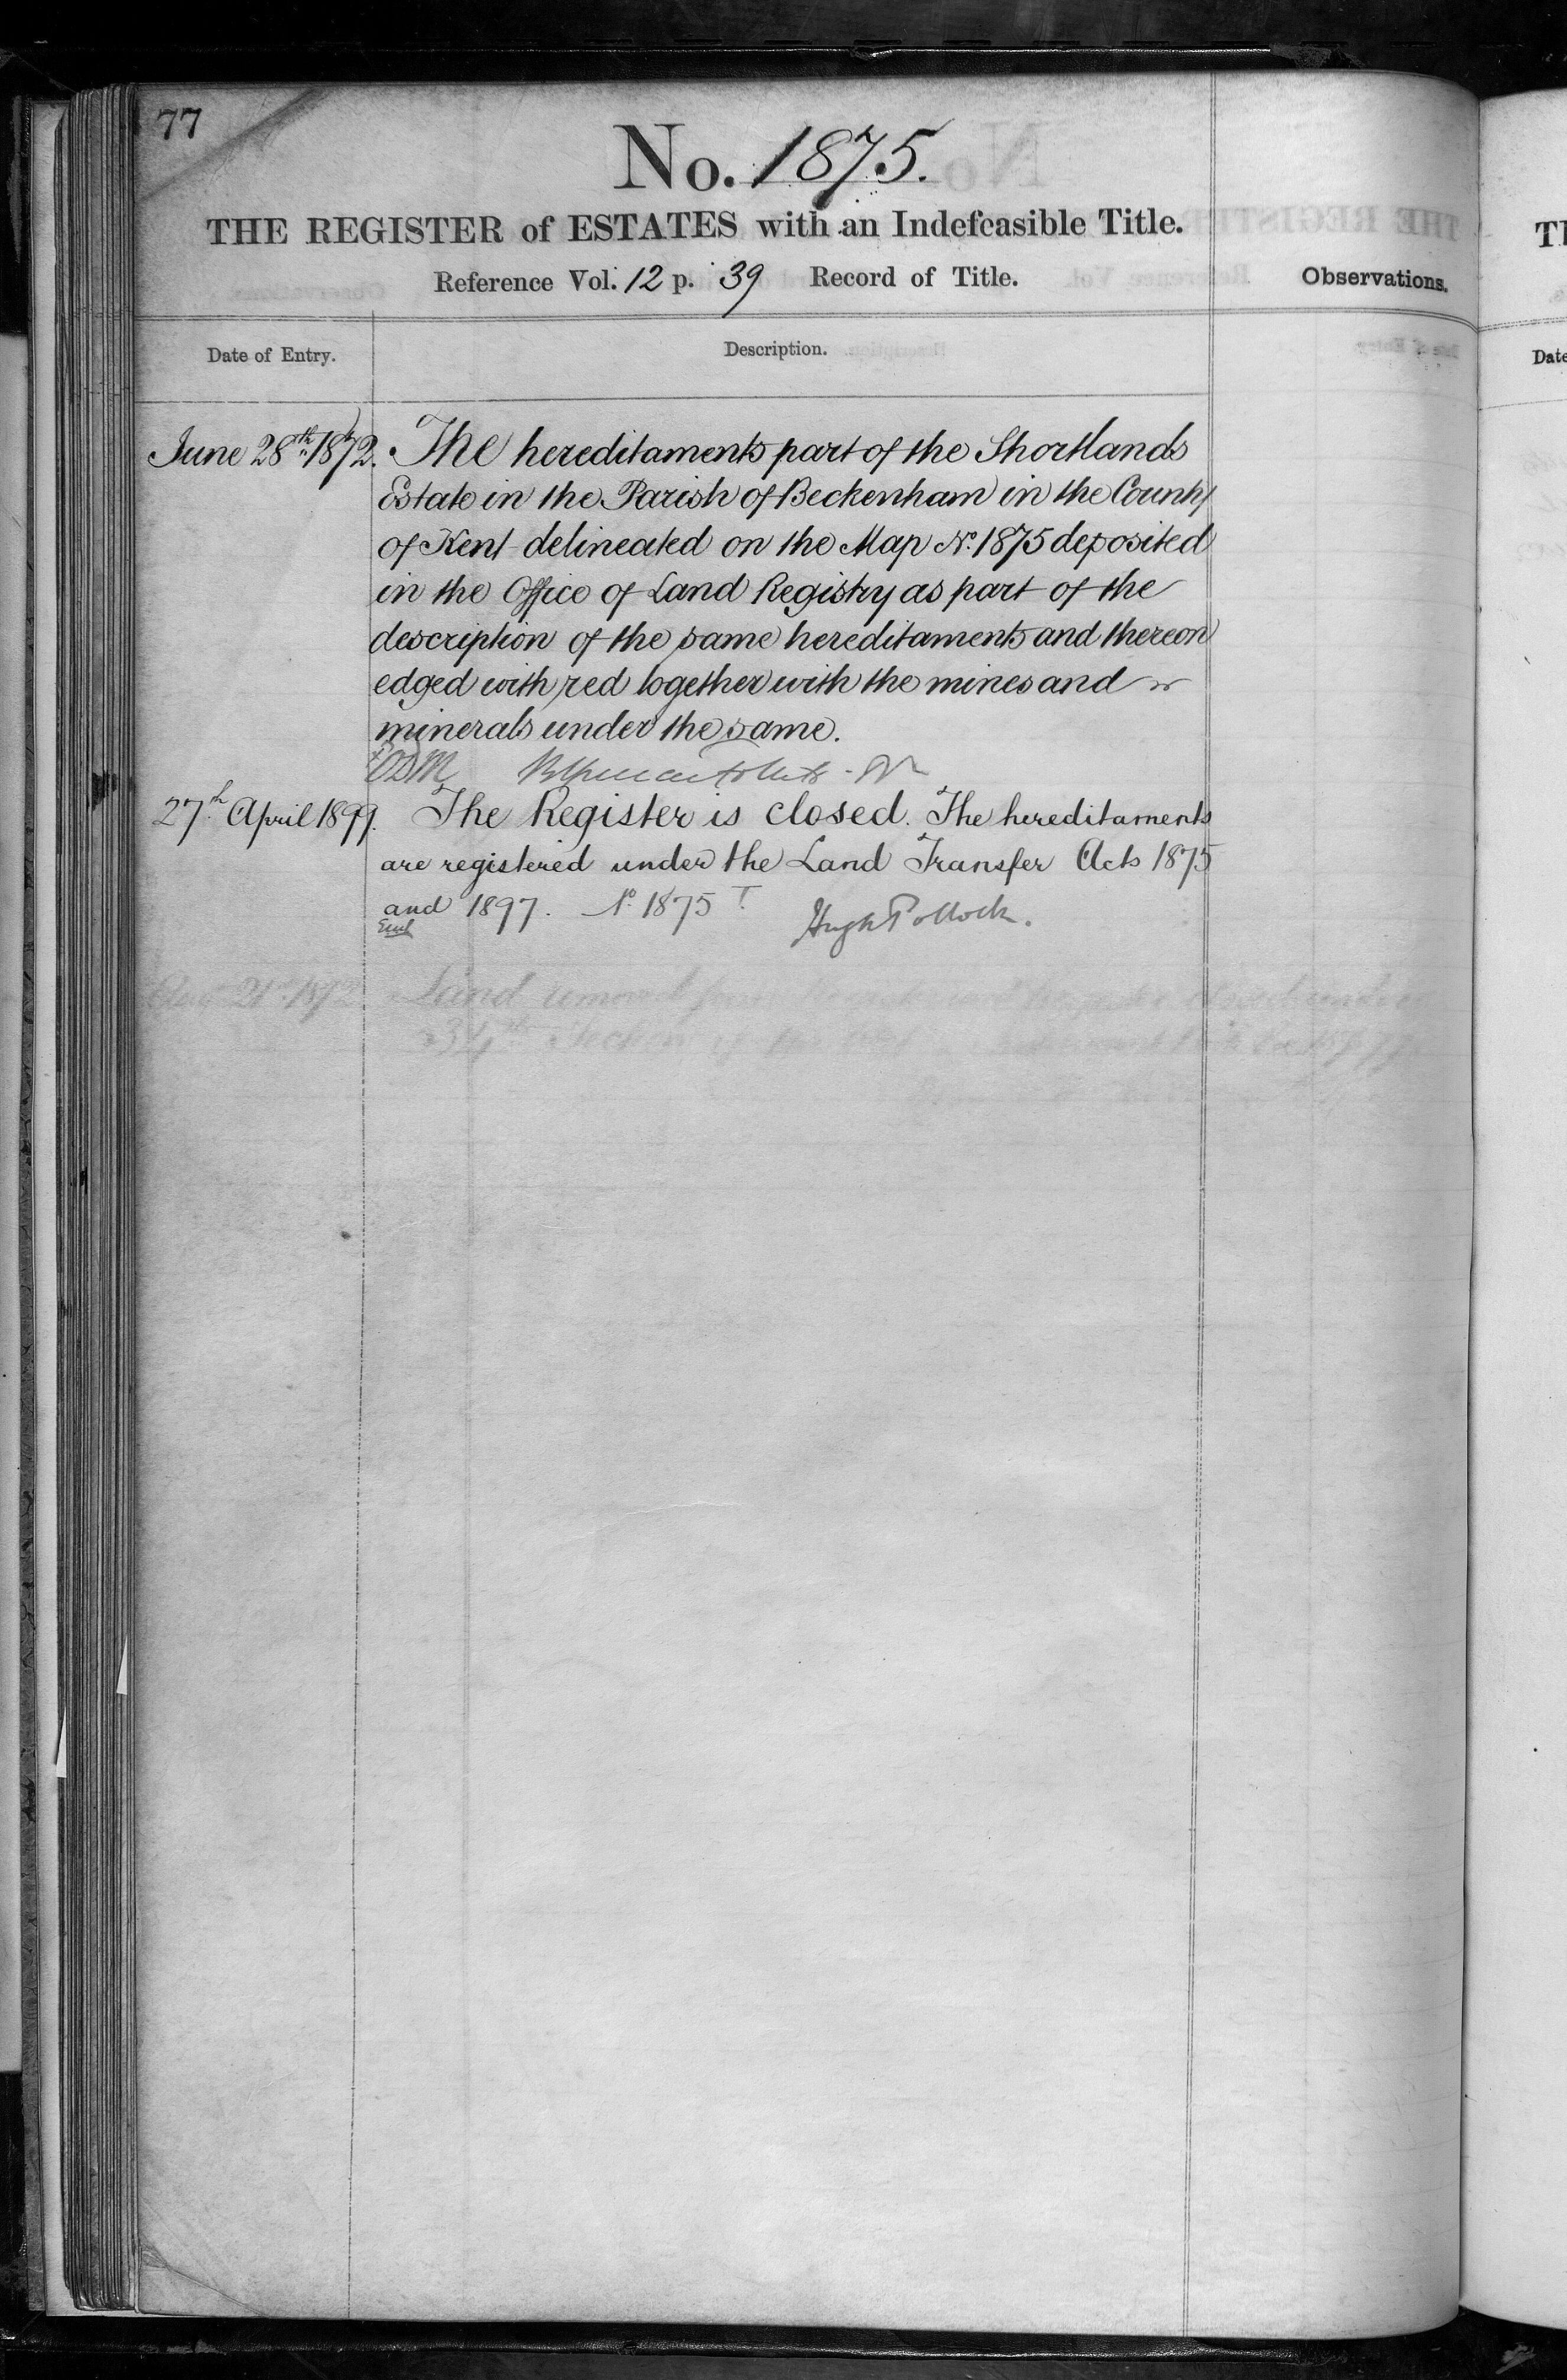 77
No. 1875.
THE REGISTER of ESTATES with an Indefeasible Title.
Reference Vol. 12 p. 39 Record of Title.
Observations.
Date of Entry.
Description.
June 28th 1872. The hereditaments part of the Shortlands
Estate in the Parish of Beckenham in the County
of Kent delineated on the Map No. 1875 deposited
in the Office of Land Registry as part of the
description of the same hereditaments and thereon
edged with red together with the mines and
minerals under the same.
27th April 1899. The Register is closed. The hereditaments
are registered under the Land Transfer Acts 1875
and 1897. No. 1875 T.
Hugh Pollock.
21st 1872 Land removed from
34th Section of the